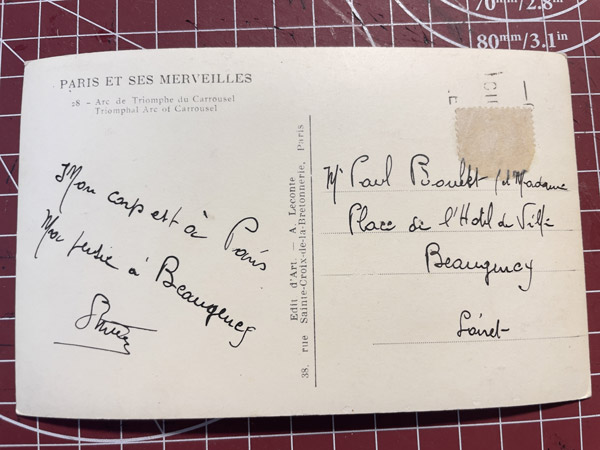 70mm/2.8
80mm/3.1in
PARIS ET SES MERVEILLES
28 - Arc de Triomphe du Carrousel
Triomphal Arc of Carrousel
Mon corps est à Paris
Ma pensée à Beaugency
38, rue Sainte-Croix-de-la-Bretonnerie, Paris
Edit d'Art — A. Leconte
Mr Paul et Madame
Place de l'Hotel de Ville
Beaugency
Loiret